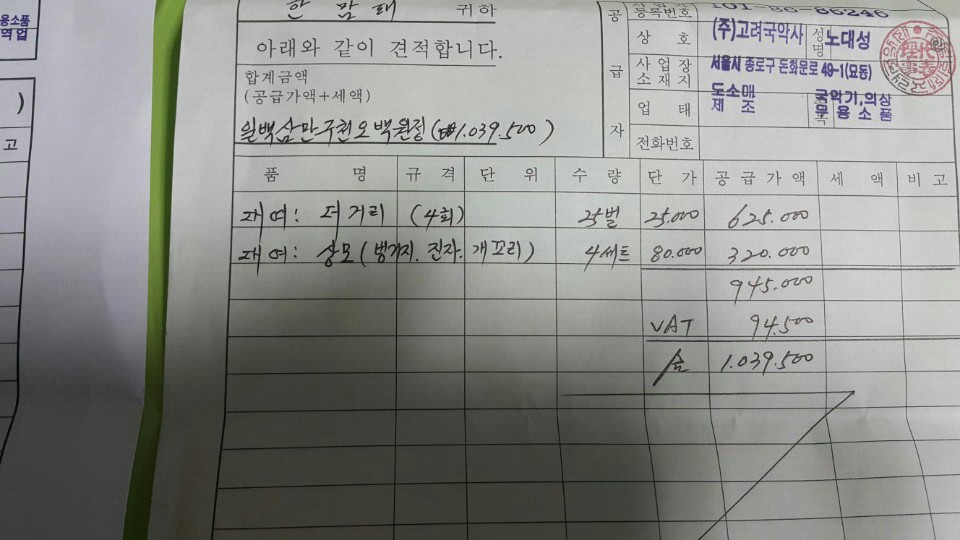 용소품
역업
)
고
한 맘 대 귀하
아래와 같이 견적합니다.
합계금액
(공급가액+세액)
일백삼만구천오백원정(₩1.039.500)
공급자
등록번호 101-86-66246
상 호 (주)고려국악사 성명 노대성
사업장소재지 서울시 종로구 돈화문로 49-1(묘동)
업 태 도소매 제조 국악기,의상 무용소품
전화번호
품 명 규 격 단 위 수 량 단 가 공급가액 세 액 비 고
대여: 저거리 (4회) 25벌 25.000 625.000
대여: 상모(벙거지. 진자. 개꼬리) 4세트 80.000 320.000
945.000
VAT 94.500
合 1.039.500